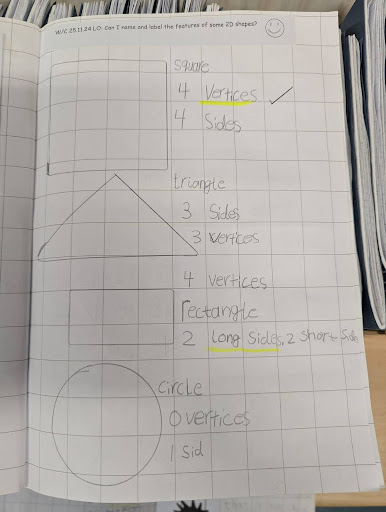 W/C 25.11.24 L.O: Can I name and label the features of some 2D shapes?
Square
4 Vertices
4 Sides
triangle
3 Sides
3 vertices
4 vertices
rectangle
2 Long Sides, 2 short Sides
circle
0 vertices
1 Sid